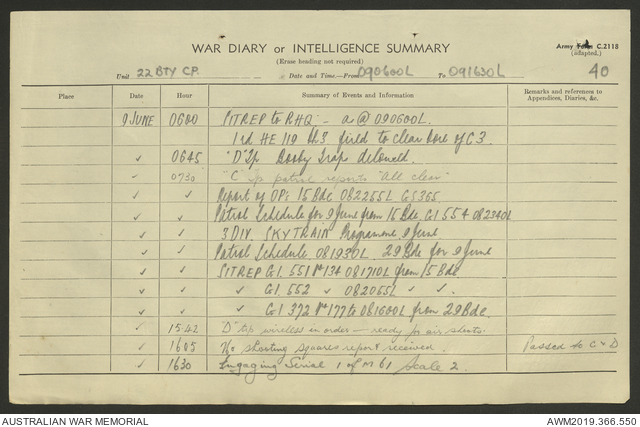 Army Form C.2118
(adapted.)
WAR DIARY or INTELLIGENCE SUMMARY
(Erase heading not required)
Unit 22 BTY CP. Date and Time—From 090600L To 091630L 40
Place Date Hour Summary of Events and Information Remarks and references to Appendices, Diaries, &c.
9 JUNE 0600 SITREP to RHQ - a @ 090600L.
1 rd HE 119 fired to clear bore of C3.
✓ 0645 "D" Tp Booby Trap detonated.
✓ 0730 "C" Tp patrol reports "All clear"
✓ ✓ Report of OP's 15 Bde 082255L G5365
✓ ✓ Patrol Schedule for 9 June from 15 Bde. G1 554 082340L
✓ ✓ 3 DIV SKYTRAIN Programme 9 June
✓ ✓ Patrol Schedule 081930L 29 Bde for 9 June
✓ ✓ SITREP G1 551 Nº 134 081710L from 15 Bde
✓ ✓ ✓ G1 552 ✓ 082055L ✓ ✓
✓ ✓ ✓ G1 372 Nº 177 to 081600L from 29 Bde.
✓ 1542 "D" tp wireless in order — ready for air shoots.
✓ 1605 shooting squares report received. Passed to C & D
✓ 1630 Engaging Serial 1 of M 61 Scale 2.
AUSTRALIAN WAR MEMORIAL AWM2019.366.550